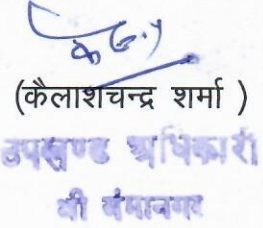 (कैलाशचन्द्र शर्मा )
उपखण्ड अधिकारी
श्री गंगानगर